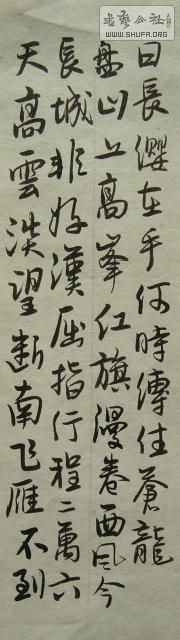 天高雲淡望斷南飛雁不到
長城非好漢屈指行程二萬六
盤山上高峯紅旗漫卷西風今
日長纓在手何時縛住蒼龍
書藝公社
WWW.SHUFA.ORG